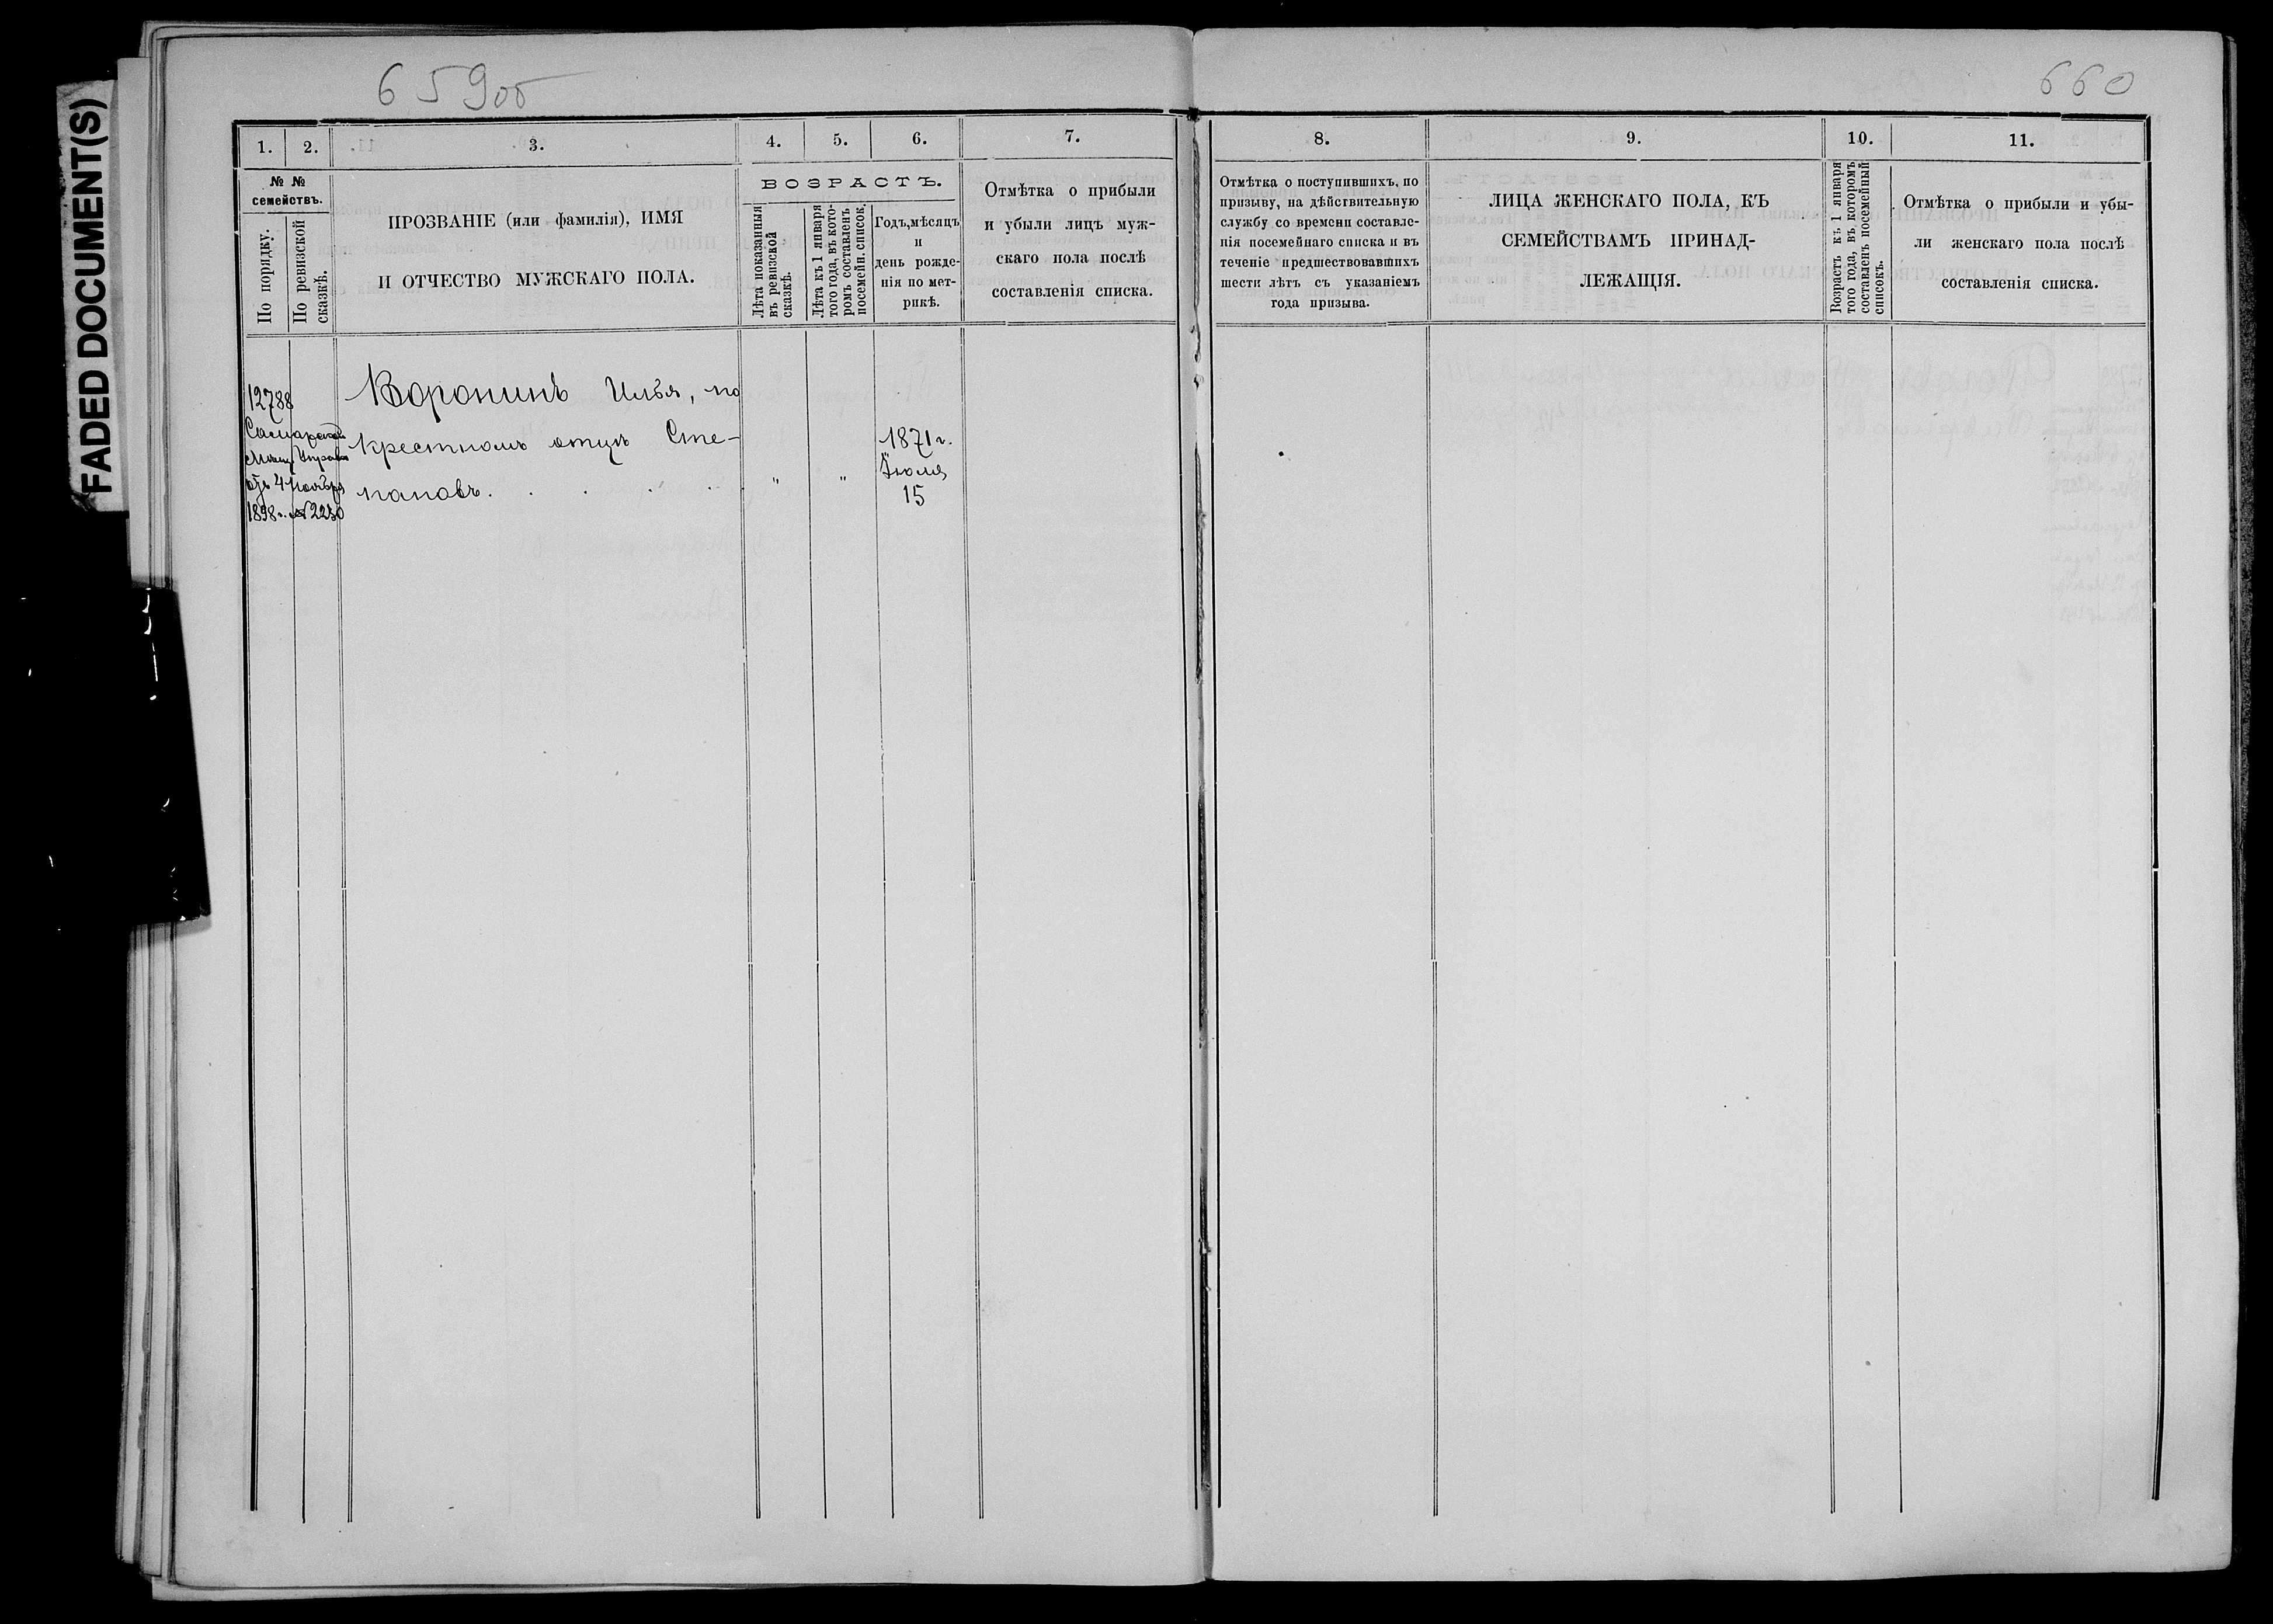 FADED DOCUMENT(S)
659об
660
1.
2.
3.
4.
5.
6.
7.
8.
9.
10.
11.
№ №
семействъ.
По порядку.
По ревизской
сказкѣ.
ПРОЗВАНІЕ (или фамилія), ИМЯ
И ОТЧЕСТВО МУЖСКАГО ПОЛА.
ВОЗРАСТЪ.
Лѣта показанныя
въ ревизской
сказкѣ.
Лѣта къ 1 января
того года, въ кото-
ромъ составленъ
посемейн. список.
Годъ, мѣсяцъ
и
день рожде-
нія по мет-
рикѣ.
Отмѣтка о прибыли
и убыли лицъ муж-
скаго пола послѣ
составленія списка.
Отмѣтка о поступившихъ, по
призыву, на дѣйствительную
службу со времени составле-
нія посемейнаго списка и въ
теченіе предшествовавшихъ
шести лѣтъ съ указаніемъ
года призыва.
ЛИЦА ЖЕНСКАГО ПОЛА, КЪ
СЕМЕЙСТВАМЪ ПРИНАД-
ЛЕЖАЩІЯ.
Возрастъ къ 1 января
того года, въ которомъ
составленъ посемейный
списокъ.
Отмѣтка о прибыли и убы-
ли женскаго пола послѣ
составленія списка.
12788
Самарской
Мѣщ. Управы
отъ 4 Ноября
1898 г. № 2230
Воронинъ Илья, по
крестномъ отцѣ Сте-
пановъ. . . . . " "
1871 г.
Іюля
15